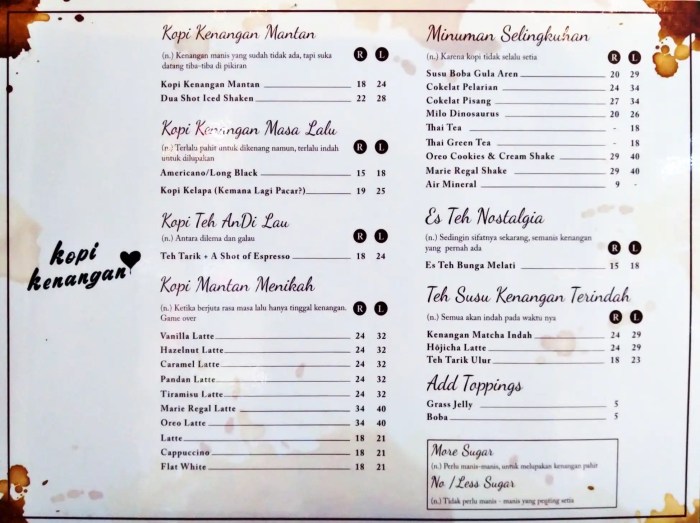 kopi
kenangan
Kopi Kenangan Mantan
(n.) Kenangan manis yang sudah tidak ada, tapi suka
datang tiba-tiba di pikiran
R L
Kopi Kenangan Mantan 18 24
Dua Shot Iced Shaken 22 28
Kopi Kenangan Masa Lalu
(n.) Terlalu pahit untuk dikenang namun, terlalu indah
untuk dilupakan
R L
Americano/Long Black 15 18
Kopi Kelapa (Kemana Lagi Pacar?) 19 25
Kopi Teh AnDi Lau
(n.) Antara dilema dan galau
R L
Teh Tarik + A Shot of Espresso 18 24
Kopi Mantan Menikah
(n.) Ketika berjuta rasa masa lalu hanya tinggal kenangan.
Game over
R L
Vanilla Latte 24 32
Hazelnut Latte 24 32
Caramel Latte 24 32
Pandan Latte 24 32
Tiramisu Latte 24 32
Marie Regal Latte 34 40
Oreo Latte 34 40
Latte 18 21
Cappuccino 18 21
Flat White 18 21
Minuman Selingkuhan
(n.) Karena kopi tidak selalu setia
R L
Susu Boba Gula Aren 20 29
Cokelat Pelarian 24 34
Cokelat Pisang 27 34
Milo Dinosaurus 20 26
Thai Tea - 18
Thai Green Tea - 18
Oreo Cookies & Cream Shake 29 40
Marie Regal Shake 29 40
Air Mineral 9 -
Es Teh Nostalgia
(n.) Sedingin sifatnya sekarang, semanis kenangan
yang pernah ada
R L
Es Teh Bunga Melati 15 18
Teh Susu Kenangan Terindah
(n.) Semua akan indah pada waktu nya
R L
Kenangan Matcha Indah 24 29
Hōjicha Latte 24 29
Teh Tarik Ulur 18 23
Add Toppings
Grass Jelly 5
Boba 5
More Sugar
(n.) Perlu manis-manis, untuk melupakan kenangan pahit
No / Less Sugar
(n.) Tidak perlu manis - manis yang penting setia